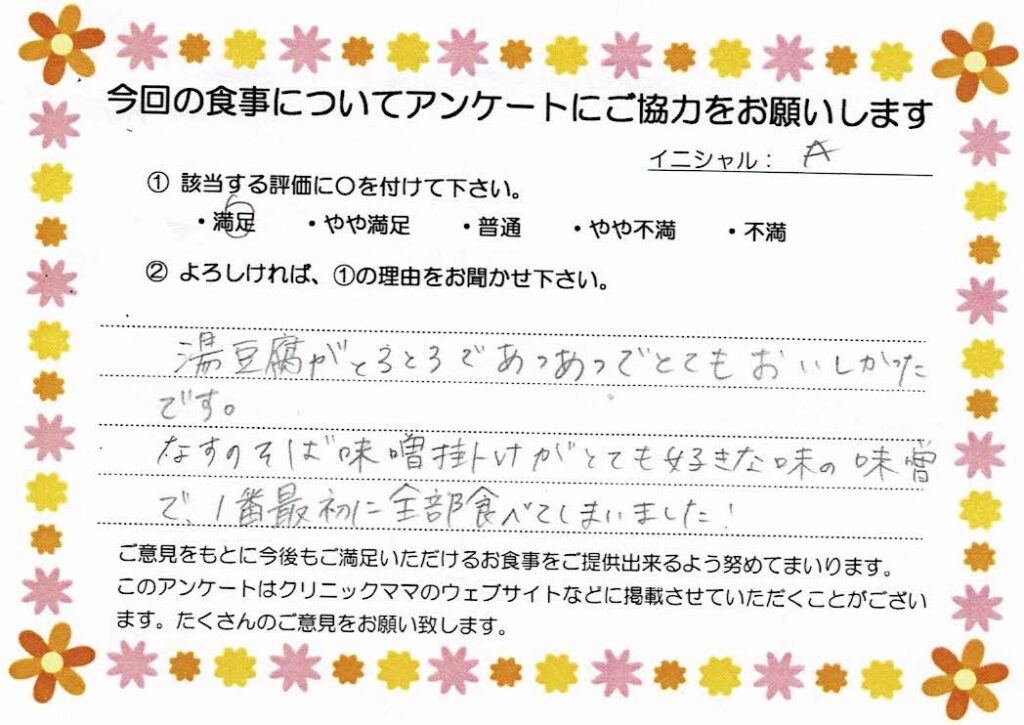 今回の食事についてアンケートにご協力をお願いします
イニシャル： A
① 該当する評価に〇を付けて下さい。
・満足 ・やや満足 ・普通 ・やや不満 ・不満
② よろしければ、①の理由をお聞かせ下さい。
湯豆腐がとろとろであつあつでとてもおいしかった
です。
なすのそば味噌掛けがとても好きな味の味噌
で、1番最初に全部食べてしまいました！
ご意見をもとに今後もご満足いただけるお食事をご提供出来るよう努めてまいります。
このアンケートはクリニックママのウェブサイトなどに掲載させていただくことがござい
ます。たくさんのご意見をお願い致します。